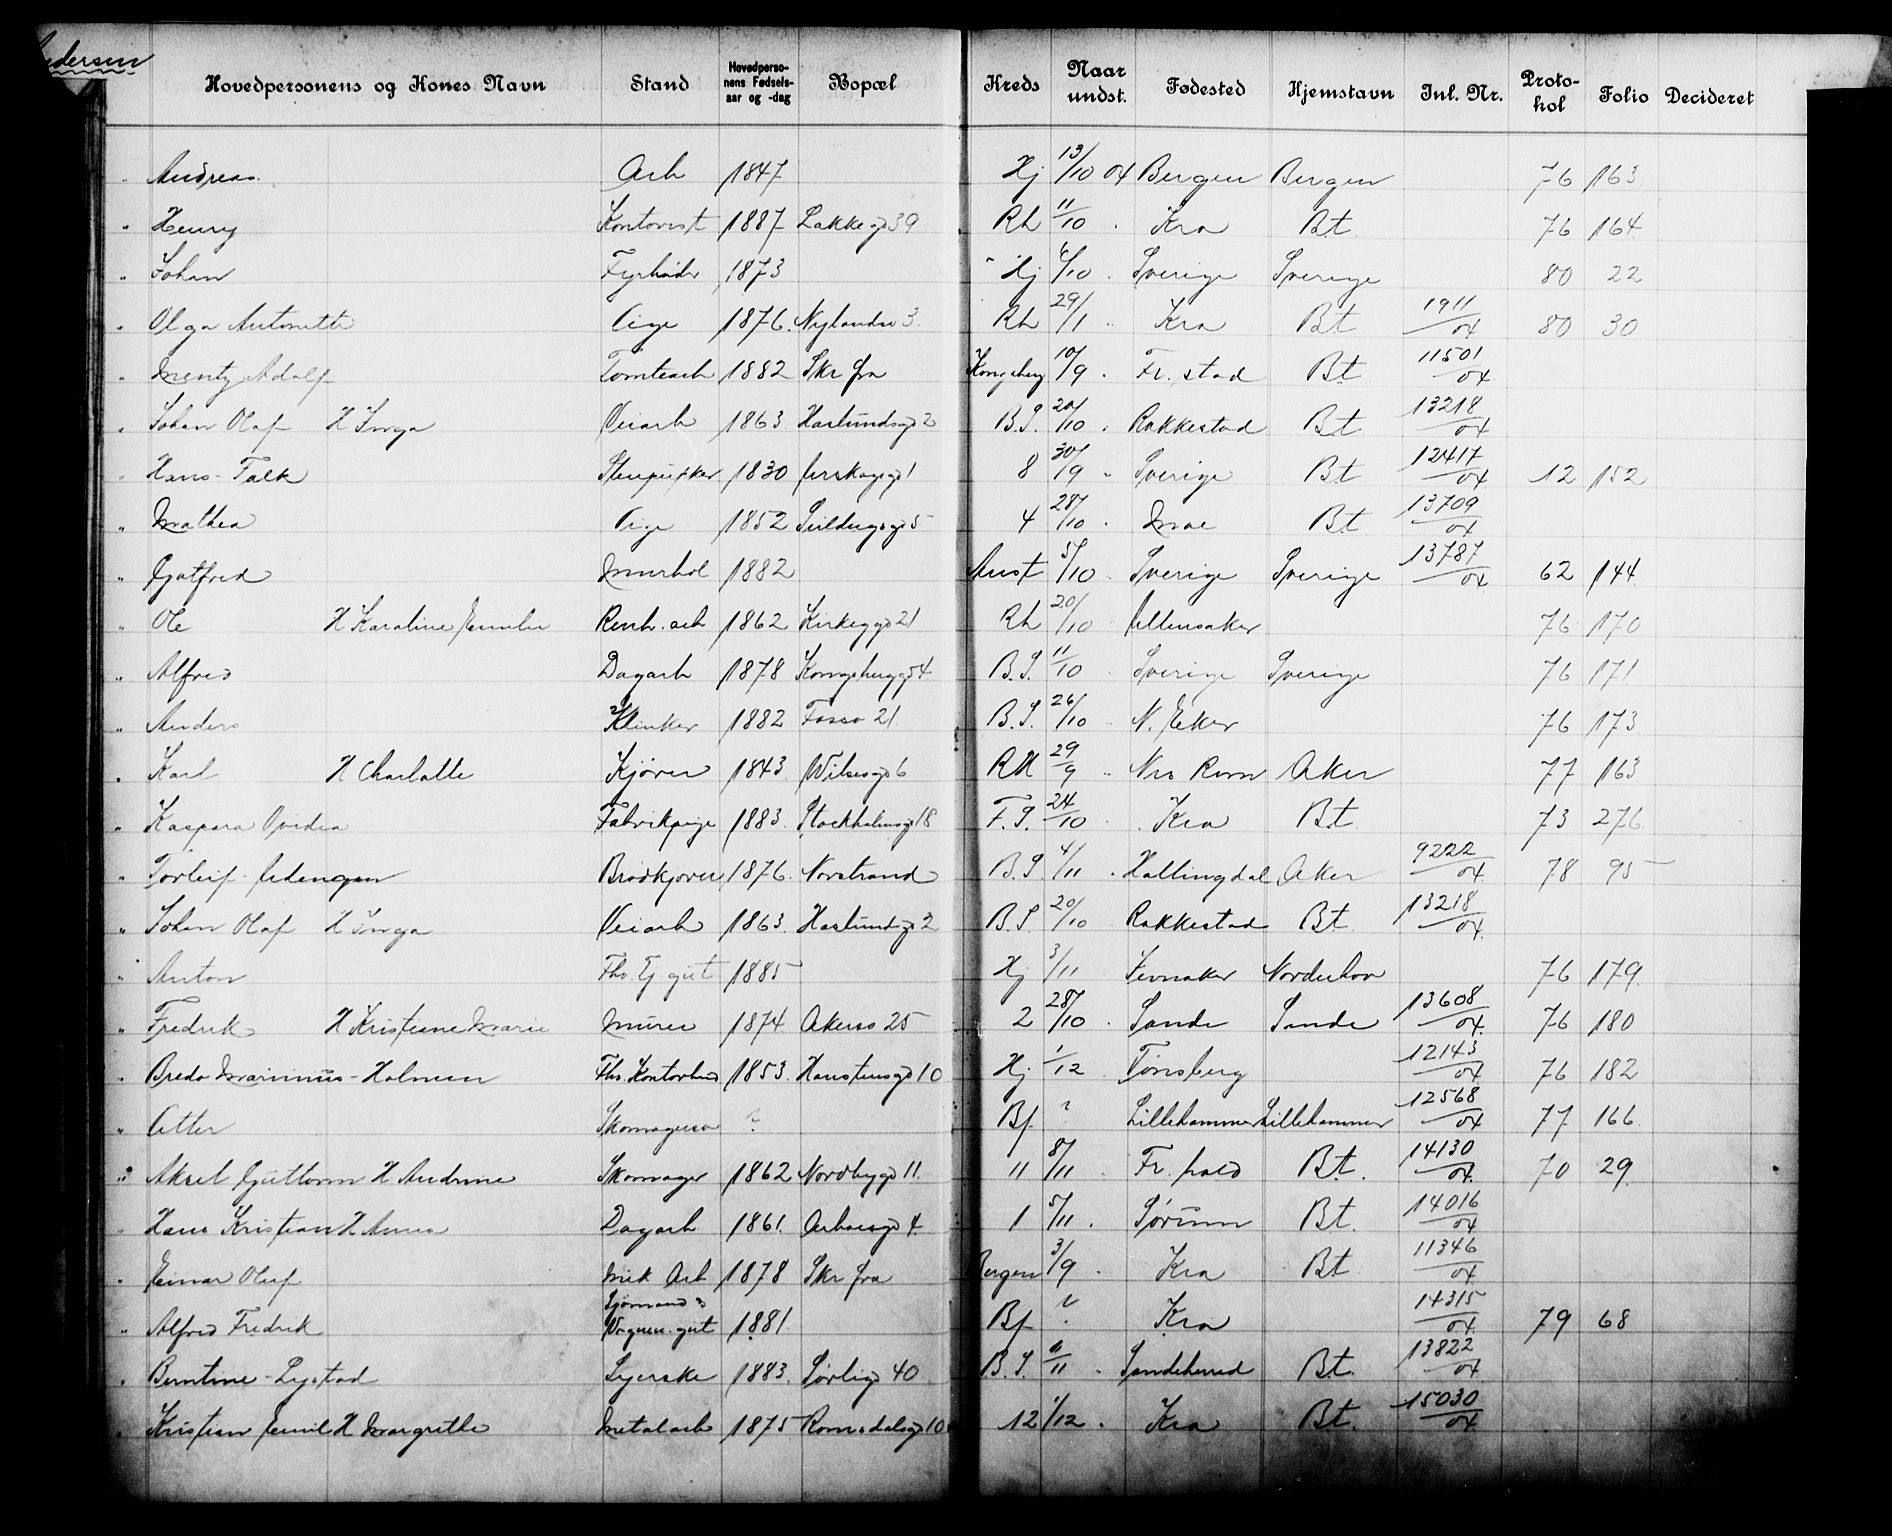 Andersen
Hovedpersonens og Kones Navn Stand Hovedpersonens Fødselsaar og -dag Bopæl Kreds Naar undst. Fødested Hjemstavn Inl. Nr. Protokol Folio Decideret
" Andreas Arb 1847 Hj 13/10 04 Bergen Bergen 76 163
" Henry Kontorist 1887 Lakkegd 39 Rh 11/10 " Kra Bt. 76 164
" Johan Fyrbøder 1873 Hj 6/10 " Sverige Sverige 80 22
" Olga Antonette Pige 1876 Nylandsv 3 Rh 29/1 " Kra Bt 1911/04 80 30
" Menty Adolf Tomtearb 1882 Skr fra Kongsberg 10/9 " Fr. stad Bt 11501/04
" Johan Olaf H Inga Veiarb 1863 Haslundsgd 2 B.S. 20/10 " Rakkestad Bt 13218/04
" Hans - Falk Stenpukker 1830 1 8 30/9 " Sverige Bt 12417/04 12 152
" Mathea Pige 1852 Seildugsgd 5 4 28/10 " Moe Bt. 13709/04
" Gotfred Murhdl 1882 Aust 5/10 " Sverige Sverige 13787/04 62 144
" Ole H Karoline Emilie Renh. arb 1862 Kirkeggd 21 Rh 20/10 Ullensaker 76 170
" Alfred Dagarb 1878 Kongsberggd 4 B.S. 11/10 " Sverige Sverige 76 171
" Anders Klinker 1882 Fossv 21 B.S. 26/10 " N. Eker 76 173
" Karl H Charlotte Kjører 1843 Wilsesgd 6 RH 29/9 " Nes Rom Aker 77 163
" Kaspara Ovidia Fabrikpige 1883 Stockholmsgd 18 F.S. 24/10 " Kra Bt 73 276
" Torleif - Brødkjører 1876 Norstrand B.S. 4/11 " Hallingdal Aker 9222/04 78 95
" Johan Olaf H Inga Veiarb 1863 Haslundgd 2 B.S 20/10 " Rakkestad Bt. 13218/04
" Anton Fhv. Tj. gut 1885 Hj 3/11 " Jevnaker Norderhov 76 179
" Fredrik H Kristiane Marie Murer 1874 Akersv 25 2 28/10 " Sande Sande 13608/04 76 180
" Bredo Marinius - Holmsen Fhv. Kontorbud 1853 Hanstensgd 10 Hj 1/12 Tønsberg 12143/04 76 182
" Petter Skomagersv ? Bf ? Lillehammer Lillehammer 12568/04 77 166
" Aksel Guttorm H Andrine Skomager 1862 Nordbygd 11 11 8/11 " Fr. hald Bt. 14130/04 70 29
" Hans Kristian H Anna Dagarb 1861 Aabosgd 4 1 5/11 " Sørum Bt. 14016/04
" Einar Oluf Mek Arb 1878 Skr fra Bergen 3/9 " Kra Bt 11346/04
" Alfred Fredrik Sjømand & Vognm. gut 1881 Bf ? Kra 14315/04 79 68
" Berntine - Lystad Syerske 1883 Sørligd 40 B.S. 4/11 " Sandeherred Bt 13822/04
" Kristian Emil H Margrethe Metalarb 1875 Romsdalsgd 10 12 1/12 " Kra Bt. 15030/04